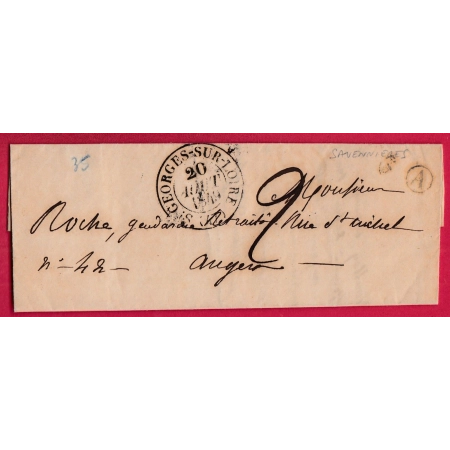 35
SAVENNIERES
ST GEORGES-SUR-LOIRE
20
AOUT
A
2
Monsieur
Roche, gendarme Retraité Rue St michel
n° 42
angers